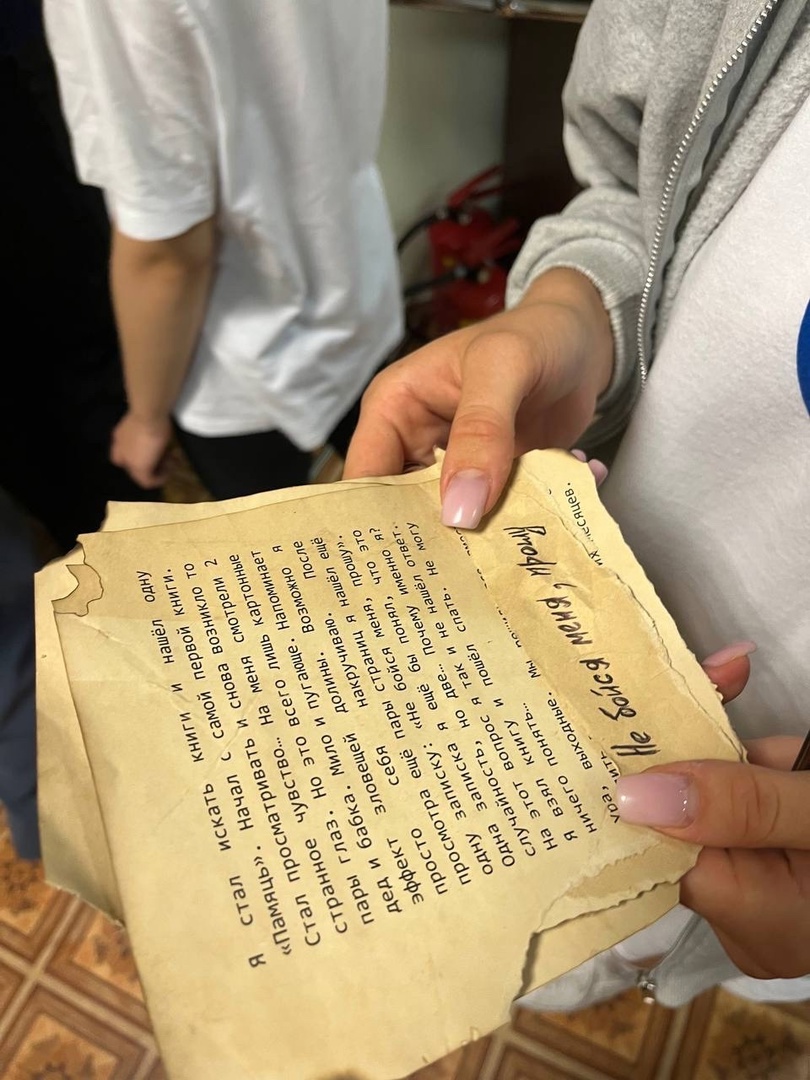 Я стал искать книги и нашёл одну
«Памяць». Начал с самой первой книги.
Стал просматривать и снова возникло то
странное чувство... На меня смотрели 2
пары глаз. Но это всего лишь картонные
дед и бабка. Мило и пугающе. Напоминает
эффект зловещей долины. Возможно я
просто себя накручиваю. После
просмотра ещё пары страниц я нашёл ещё
одну записку: «Не бойся меня, прошу».
Одна записка я ещё бы понял, что это
случайность, но две... Почему именно я?
На этот вопрос я так и не нашёл ответ.
Я взял книгу и пошёл спать. Не могу
ничего понять...
выходные. Мы
Не бойся меня, прошу
месяцев.